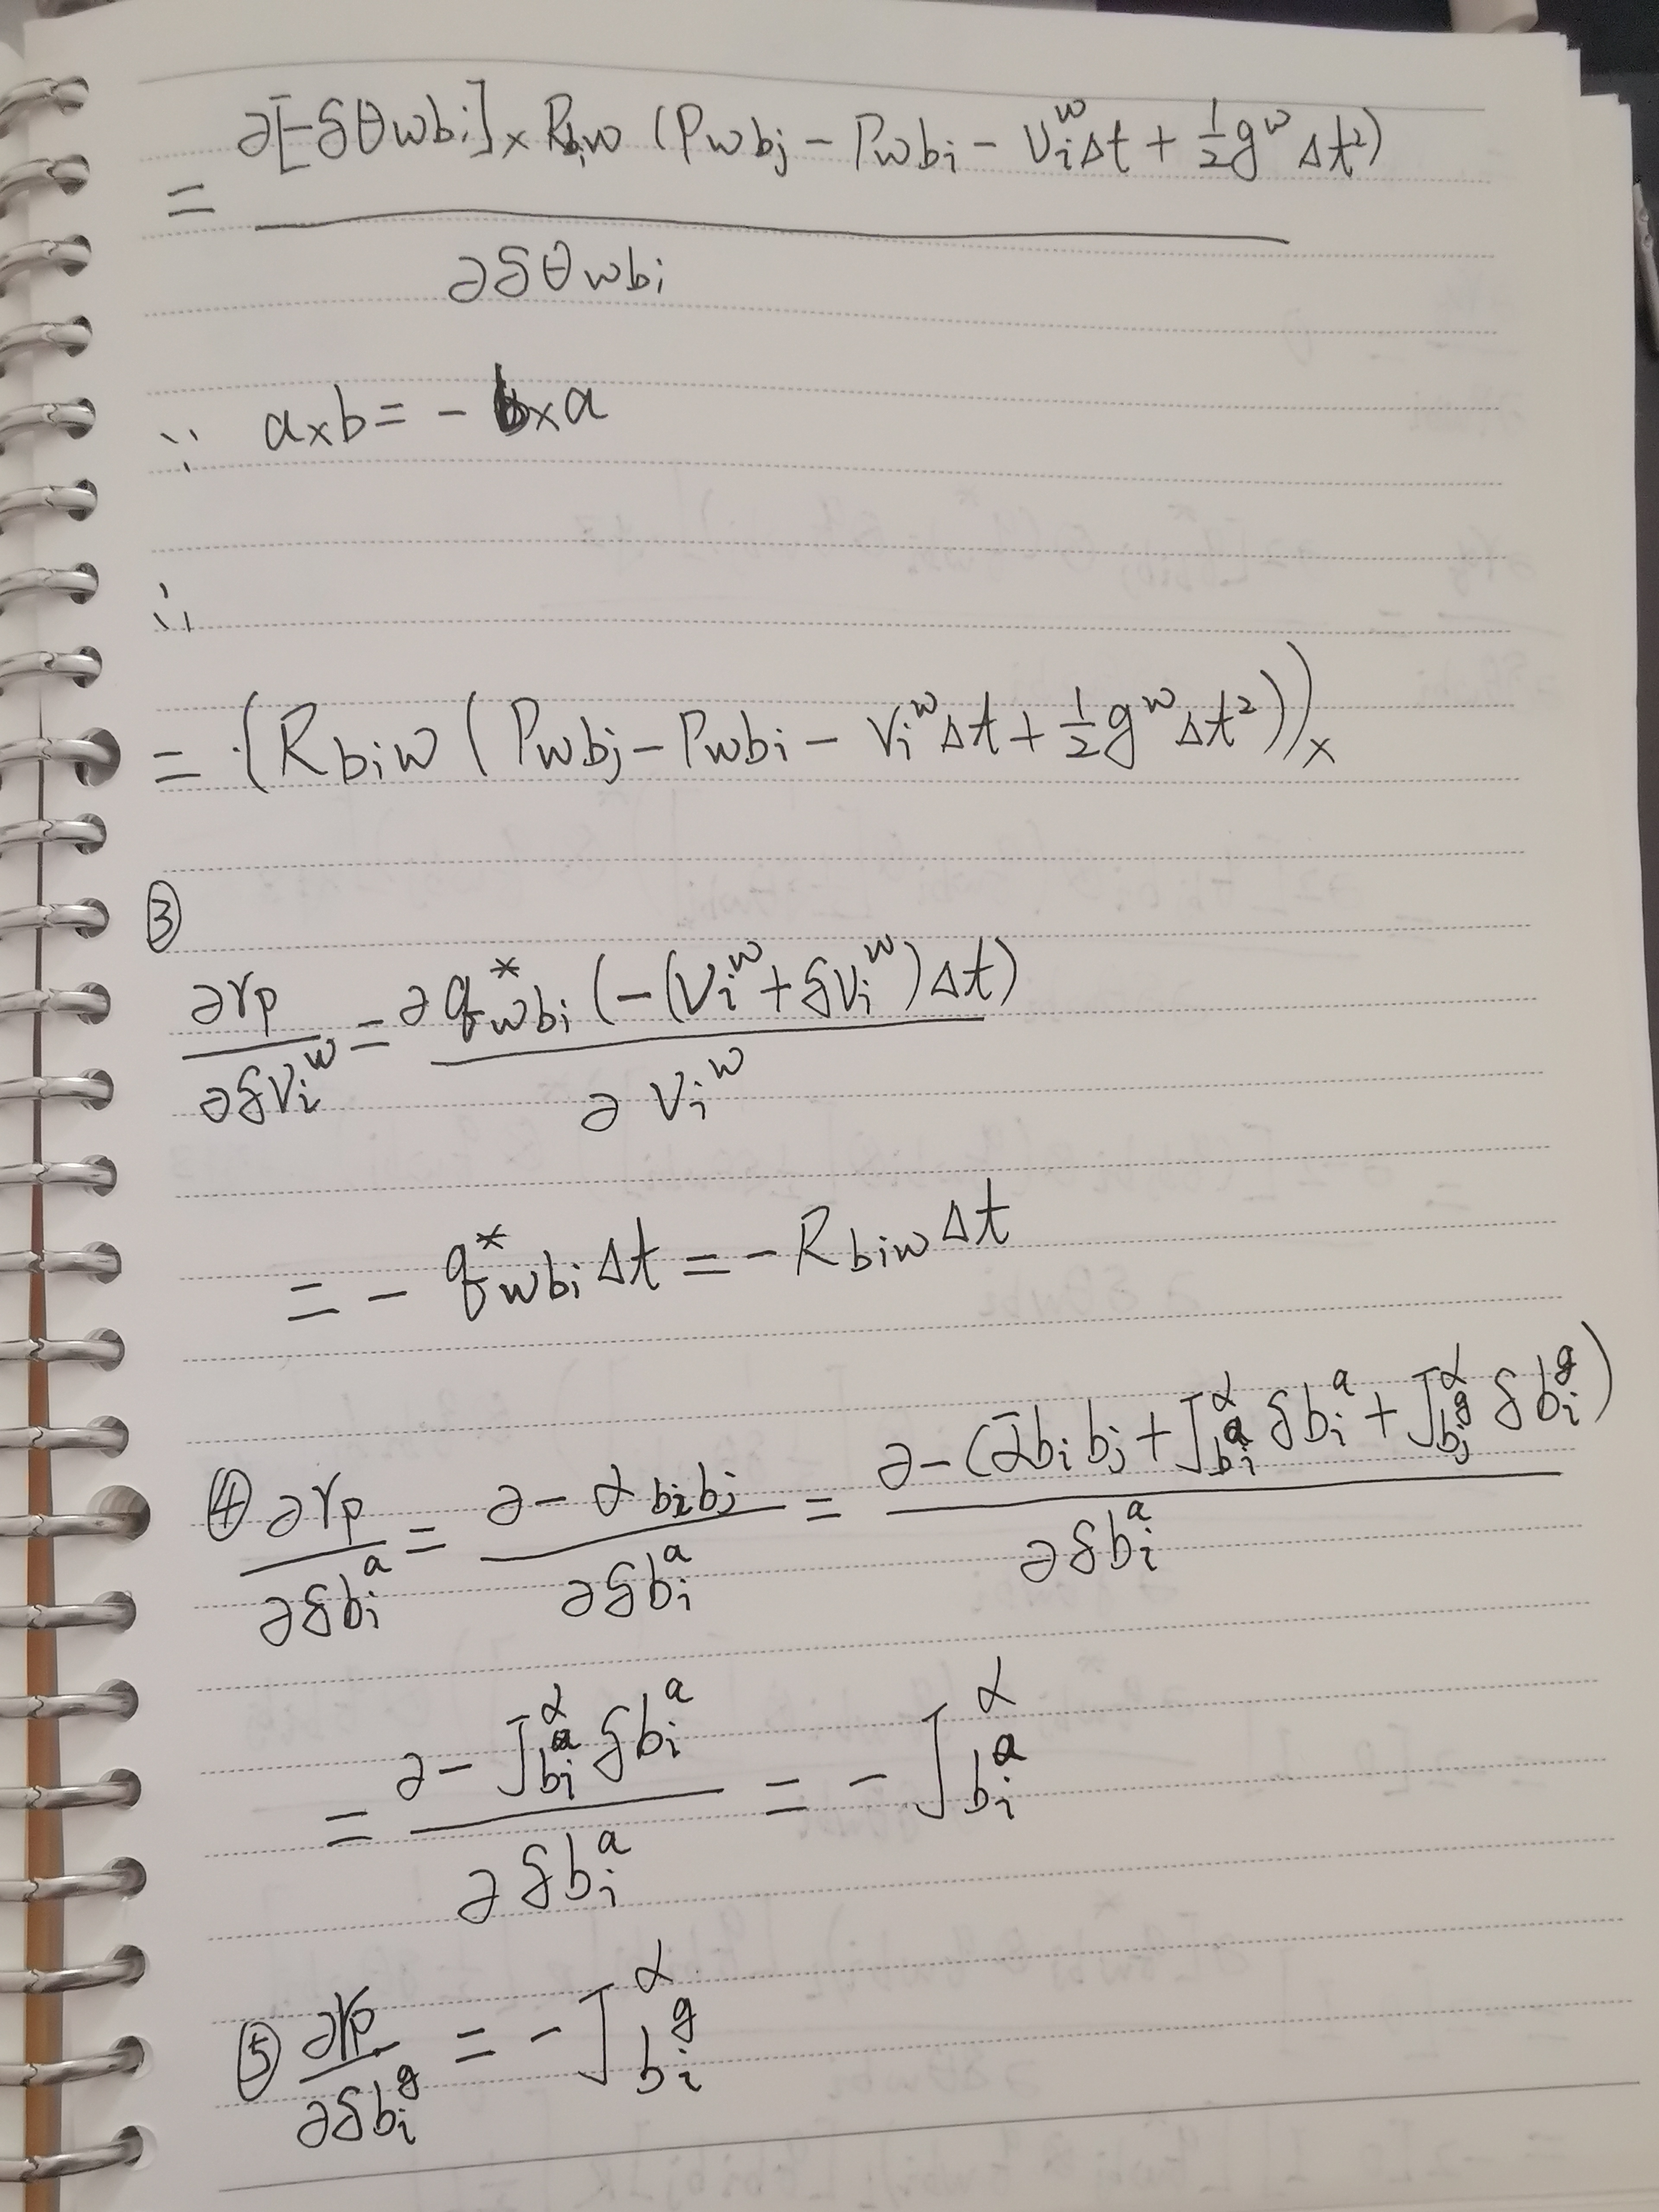 = ∂[-δθwbi]× Rbiw (Pwbj - Pwbi - Vi^w Δt + 1/2 g^w Δt²) / ∂δθwbi
∵ a×b = - b×a
∴
= (Rbiw (Pwbj - Pwbi - Vi^w Δt + 1/2 g^w Δt²))×
③
∂rp / ∂δVi^w = ∂ q*wbi (-(Vi^w + δVi^w) Δt) / ∂Vi^w
= - q*wbi Δt = - Rbiw Δt
④ ∂rp / ∂δbi^a = ∂ - αbibj / ∂δbi^a = ∂ - (ᾱbibj + J^α_bi^a δbi^a + J^α_bi^g δbi^g) / ∂δbi^a
= ∂ - J^α_bi^a δbi^a / ∂δbi^a = - J^α_bi^a
⑤ ∂rp / ∂δbi^g = - J^α_bi^g